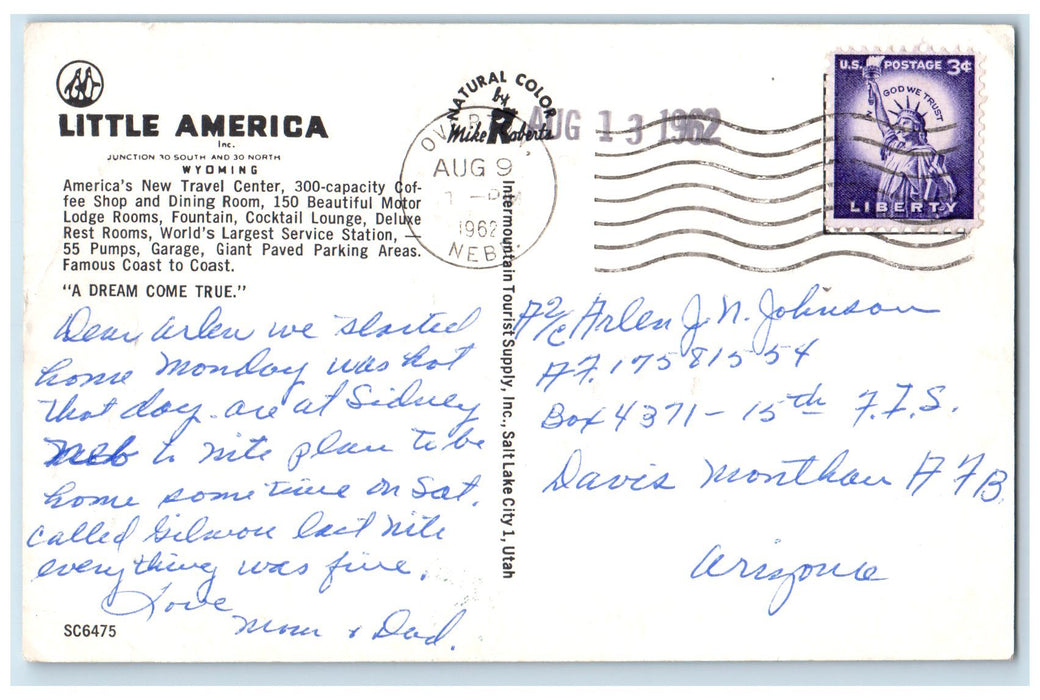 LITTLE AMERICA
Inc.
JUNCTION 30 SOUTH AND 30 NORTH
WYOMING
America's New Travel Center, 300-capacity Cof-
fee Shop and Dining Room, 150 Beautiful Motor
Lodge Rooms, Fountain, Cocktail Lounge, Deluxe
Rest Rooms, World's Largest Service Station, —
55 Pumps, Garage, Giant Paved Parking Areas.
Famous Coast to Coast.
"A DREAM COME TRUE."
Dear Arlen we started
home Monday was hot
that day. are at Sidney
Neb to nite plan to be
home some time on Sat.
called last nite
everything was fine.
Love
Mom & Dad.
SC6475
NATURAL COLOR
by
Mike Roberts
AUG 13 1962
AUG 9
PM
1962
NEBR.
Intermountain Tourist Supply, Inc., Salt Lake City 1, Utah
U.S. POSTAGE 3¢
IN GOD WE TRUST
LIBERTY
A2/c Arlen J. N. Johnson
A.F. 17581554
Box 4371 - 15th F.I.S.
Davis Monthan A F B
Arizona